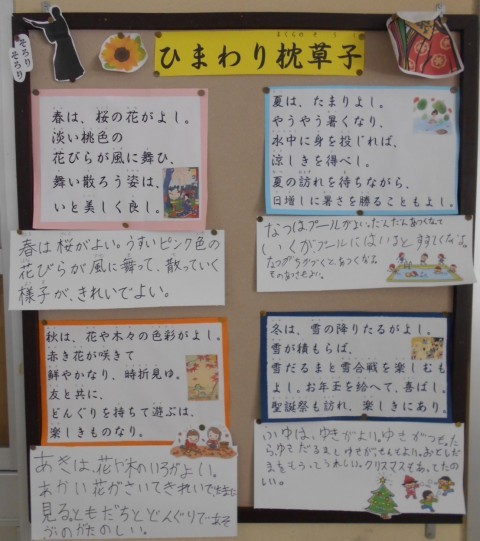 そろり
そろり
ひまわり枕草子
春は、桜の花がよし。
淡い桃色の
花びらが風に舞ひ、
舞い散ろう姿は、
いと美しく良し。
春は桜がよい。うすいピンク色の
花びらが風に舞って、散っていく
様子が、きれいでよい。
夏は、たまりよし。
やうやう暑くなり、
水中に身を投じれば、
涼しきを得べし。
夏の訪れを待ちながら、
日増しに暑さを勝ることもよし。
なつはプールがよい。だんだんあつくなて
プールにはいると
秋は、花や木々の色彩がよし。
赤き花が咲きて
鮮やかなり、時折見ゆ。
友と共に、
どんぐりを持ちて遊ぶは、
楽しきものなり。
あきは、花や木のいろがよい。
あかい花がさいてきれいで
見る。ともだちとどんぐりであそ
ぶのがたのしい。
冬は、雪の降りたるがよし。
雪が積もらば、
雪だるまと雪合戦を楽しむも
よし。お年玉を給へて、喜ばし。
聖誕祭も訪れ、楽しきにあり。
ふゆは、ゆきがよい。ゆきがつもったら
ゆきだるまと
うれしい。クリスマスもあってたの
しい。